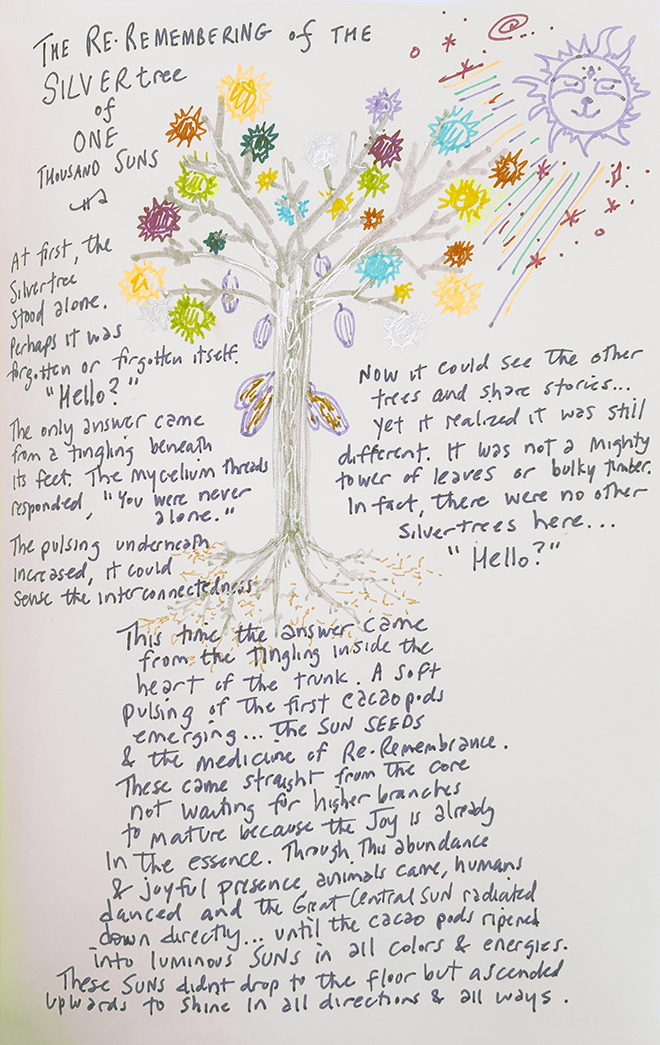 THE RE·REMEMBERING of THE
SILVERtree
of
ONE
THOUSAND SUNS
At first, the
Silvertree
stood alone.
Perhaps it was
forgotten or firgotten itself.
"Hello?"
The only answer came
from a tingling beneath
its feet. The mycelium threads
responded, "You were never
alone."
The pulsing underneath
increased, it could
sense the interconnectedness
Now it could see the other
trees and share stories...
yet it realized it was still
different. It was not a mighty
tower of leaves or bulky timber.
In fact, there were no other
Silvertrees here...
"Hello?"
This time the answer came
from the tingling inside the
heart of the trunk. A soft
pulsing of the first cacao pods
emerging... the SUN SEEDS
& the medicine of Re·Remembrance.
These came straight from the core
not waiting for higher branches
to mature because the Joy is already
in the essence. Through This abundance
& joyful presence, animals came, humans
danced and the Great Central Sun radiated
down directly... until the cacao pods ripened
into luminous SUNS in all colors & energies.
These SUNS didnt drop to the floor but ascended
upwards to shine in all directions & all ways.